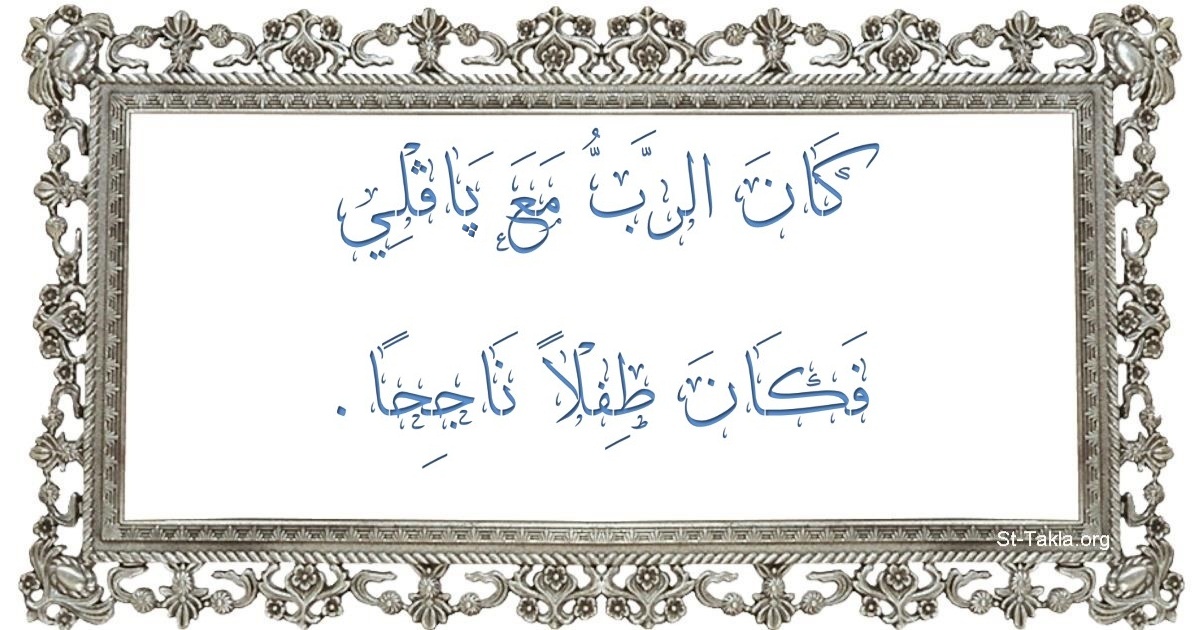 كَانَ الرَّبُّ مَعَ پَاڤْلِي
فَكَانَ طِفْلاً نَاجِحًا .
St-Takla.org